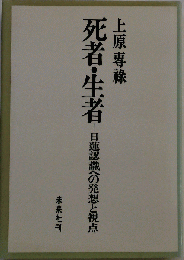 上原專祿
死者・生者
日蓮認識への発想と視点
未来社刊